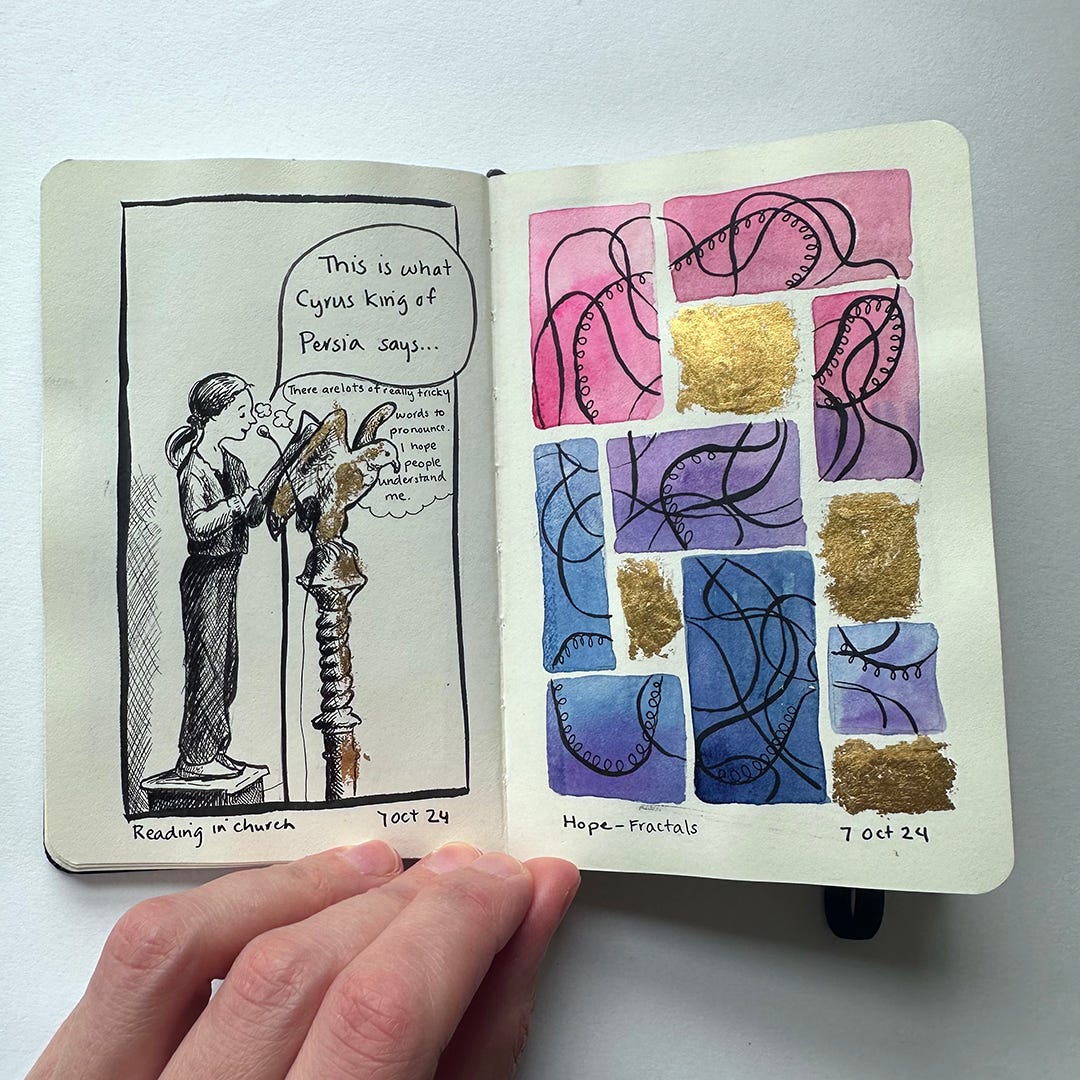 This is what
Cyrus King of
Persia says...
There are lots of really tricky
words to
pronounce.
I hope
people
understand
me.
Reading in church
7 Oct 24
Hope-Fractals
7 Oct 24